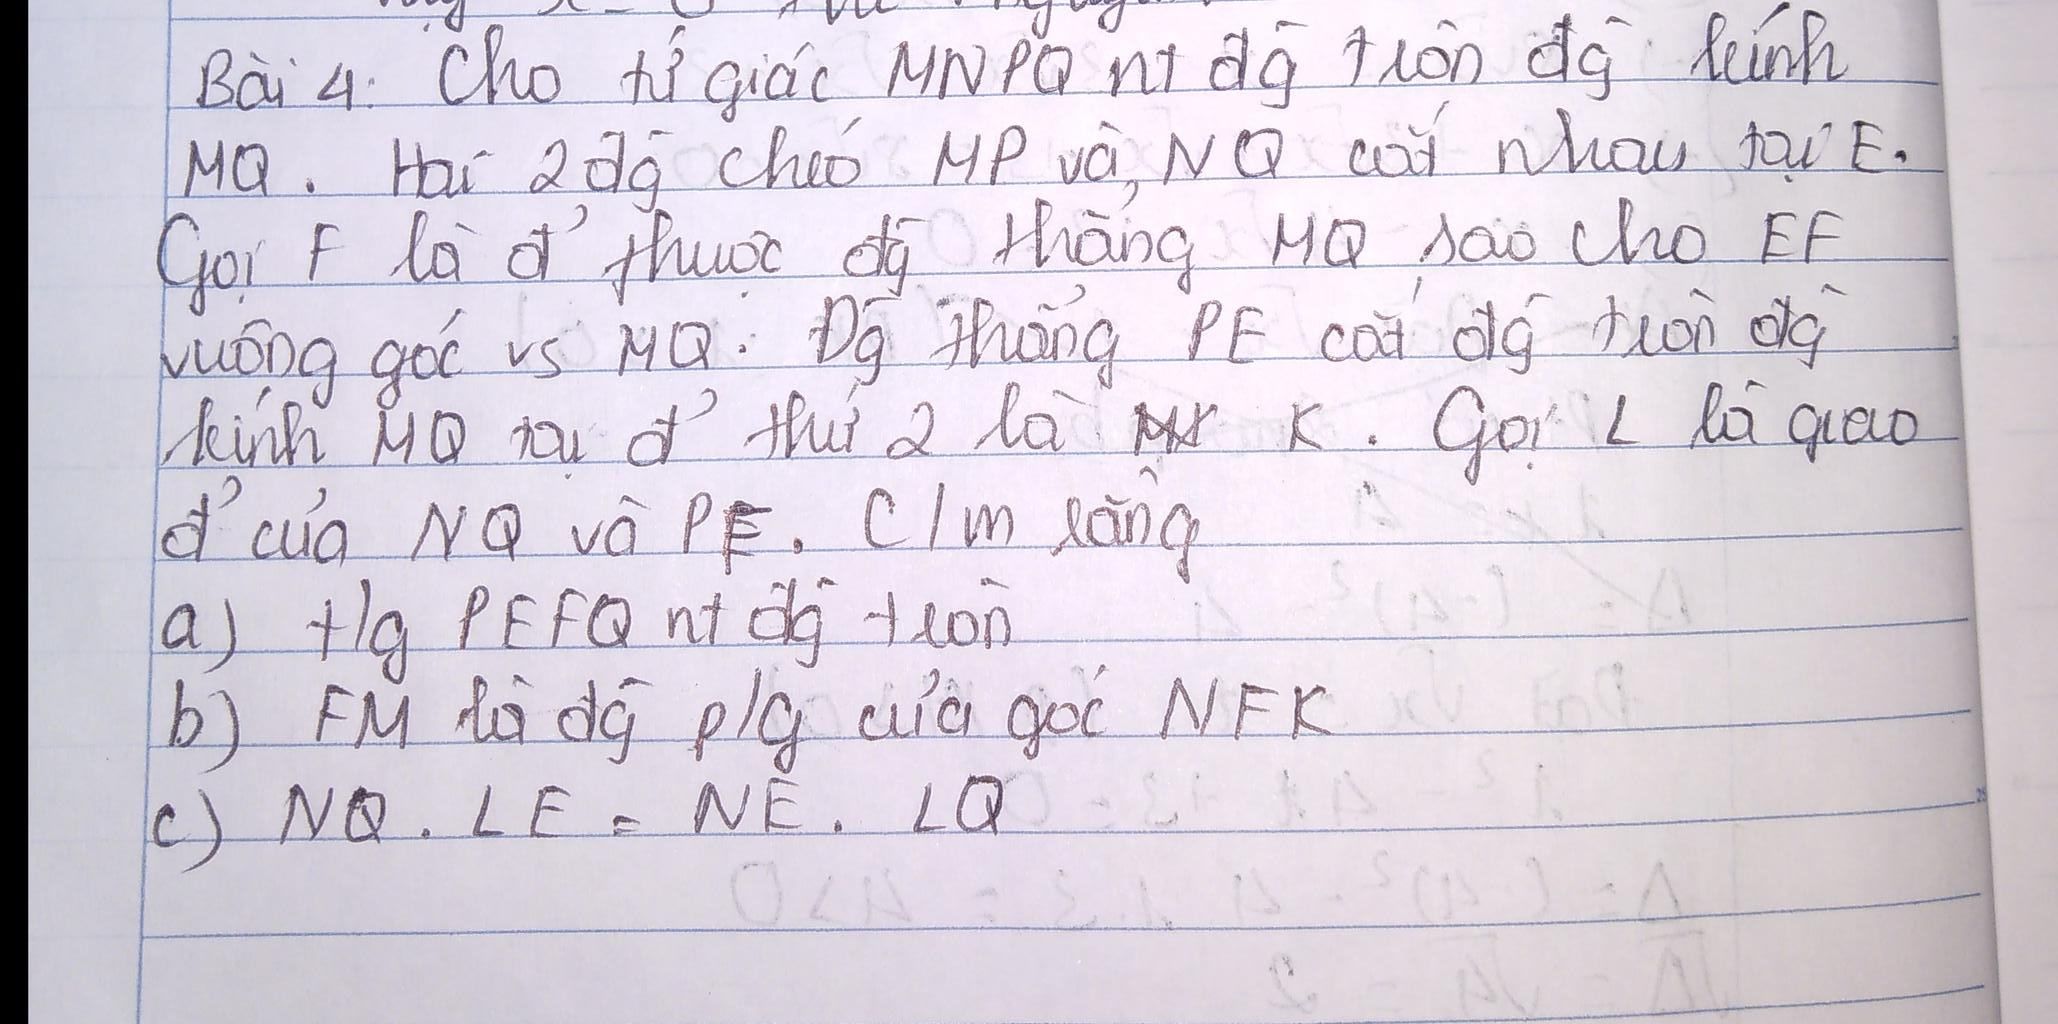 Bài 4: Cho tứ giác MNPQ nt đg tròn đg kính
MQ. Hai 2 đg chéo MP và NQ cắt nhau tại E.
Gọi F là đ' thuộc đg thẳng MQ sao cho EF
vuông góc vs MQ. Đg thẳng PE cắt đg tròn đg
kính MQ tại đ' thứ 2 là K. Gọi L là giao
đ' của NQ và PF. C/m rằng
a) t/g PEFQ nt đg tròn
b) FM là đg p/g của góc NFK
c) NQ. LE = NE. LQ